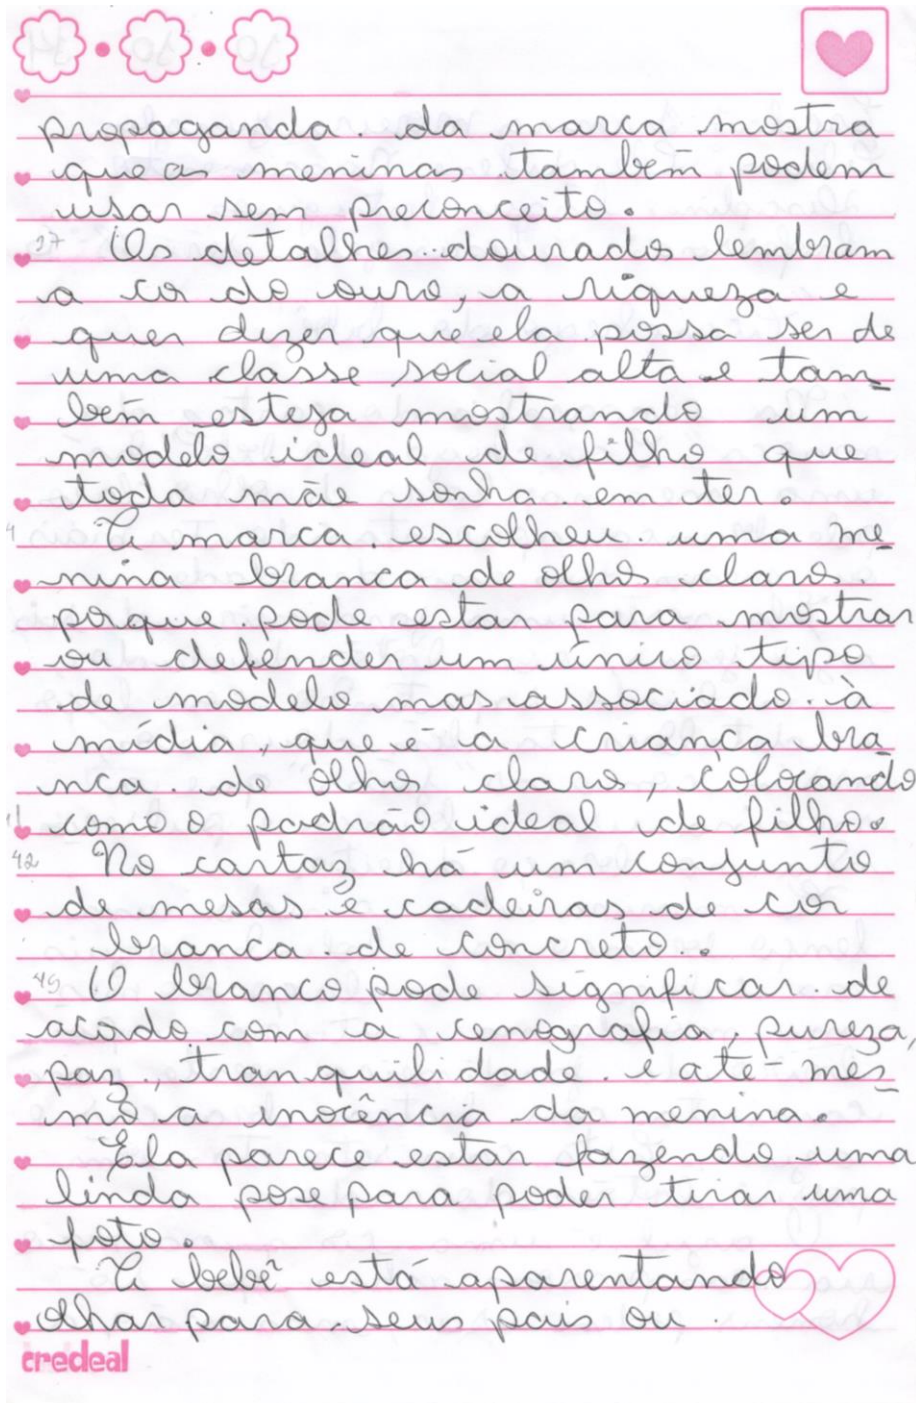 propaganda. da marca mostra
que as meninas também podem
usar sem preconceito.
27 Os detalhes dourados lembram
a cor do ouro, a riqueza e
quer dizer que ela possa ser de
uma classe social alta e tam-
bém esteja mostrando um
modelo ideal de filho que
toda mãe sonha em ter.
A marca escolheu uma me-
nina branca de olhos claros
porque pode estar para mostrar
ou defender um único tipo
de modelo mas associado à
mídia, que é a criança bra
nca de olhos claros, colocando
como o padrão ideal de filho.
42 No cartaz há um conjunto
de mesas e cadeiras de cor
branca de concreto.
45 O branco pode significar de
acordo com a cenografia, pureza,
paz, tranquilidade e até mes-
mo a inocência da menina.
Ela parece estar fazendo uma
linda pose para poder tirar uma
foto.
A bebê está aparentando
olhar para seus pais ou
credeal